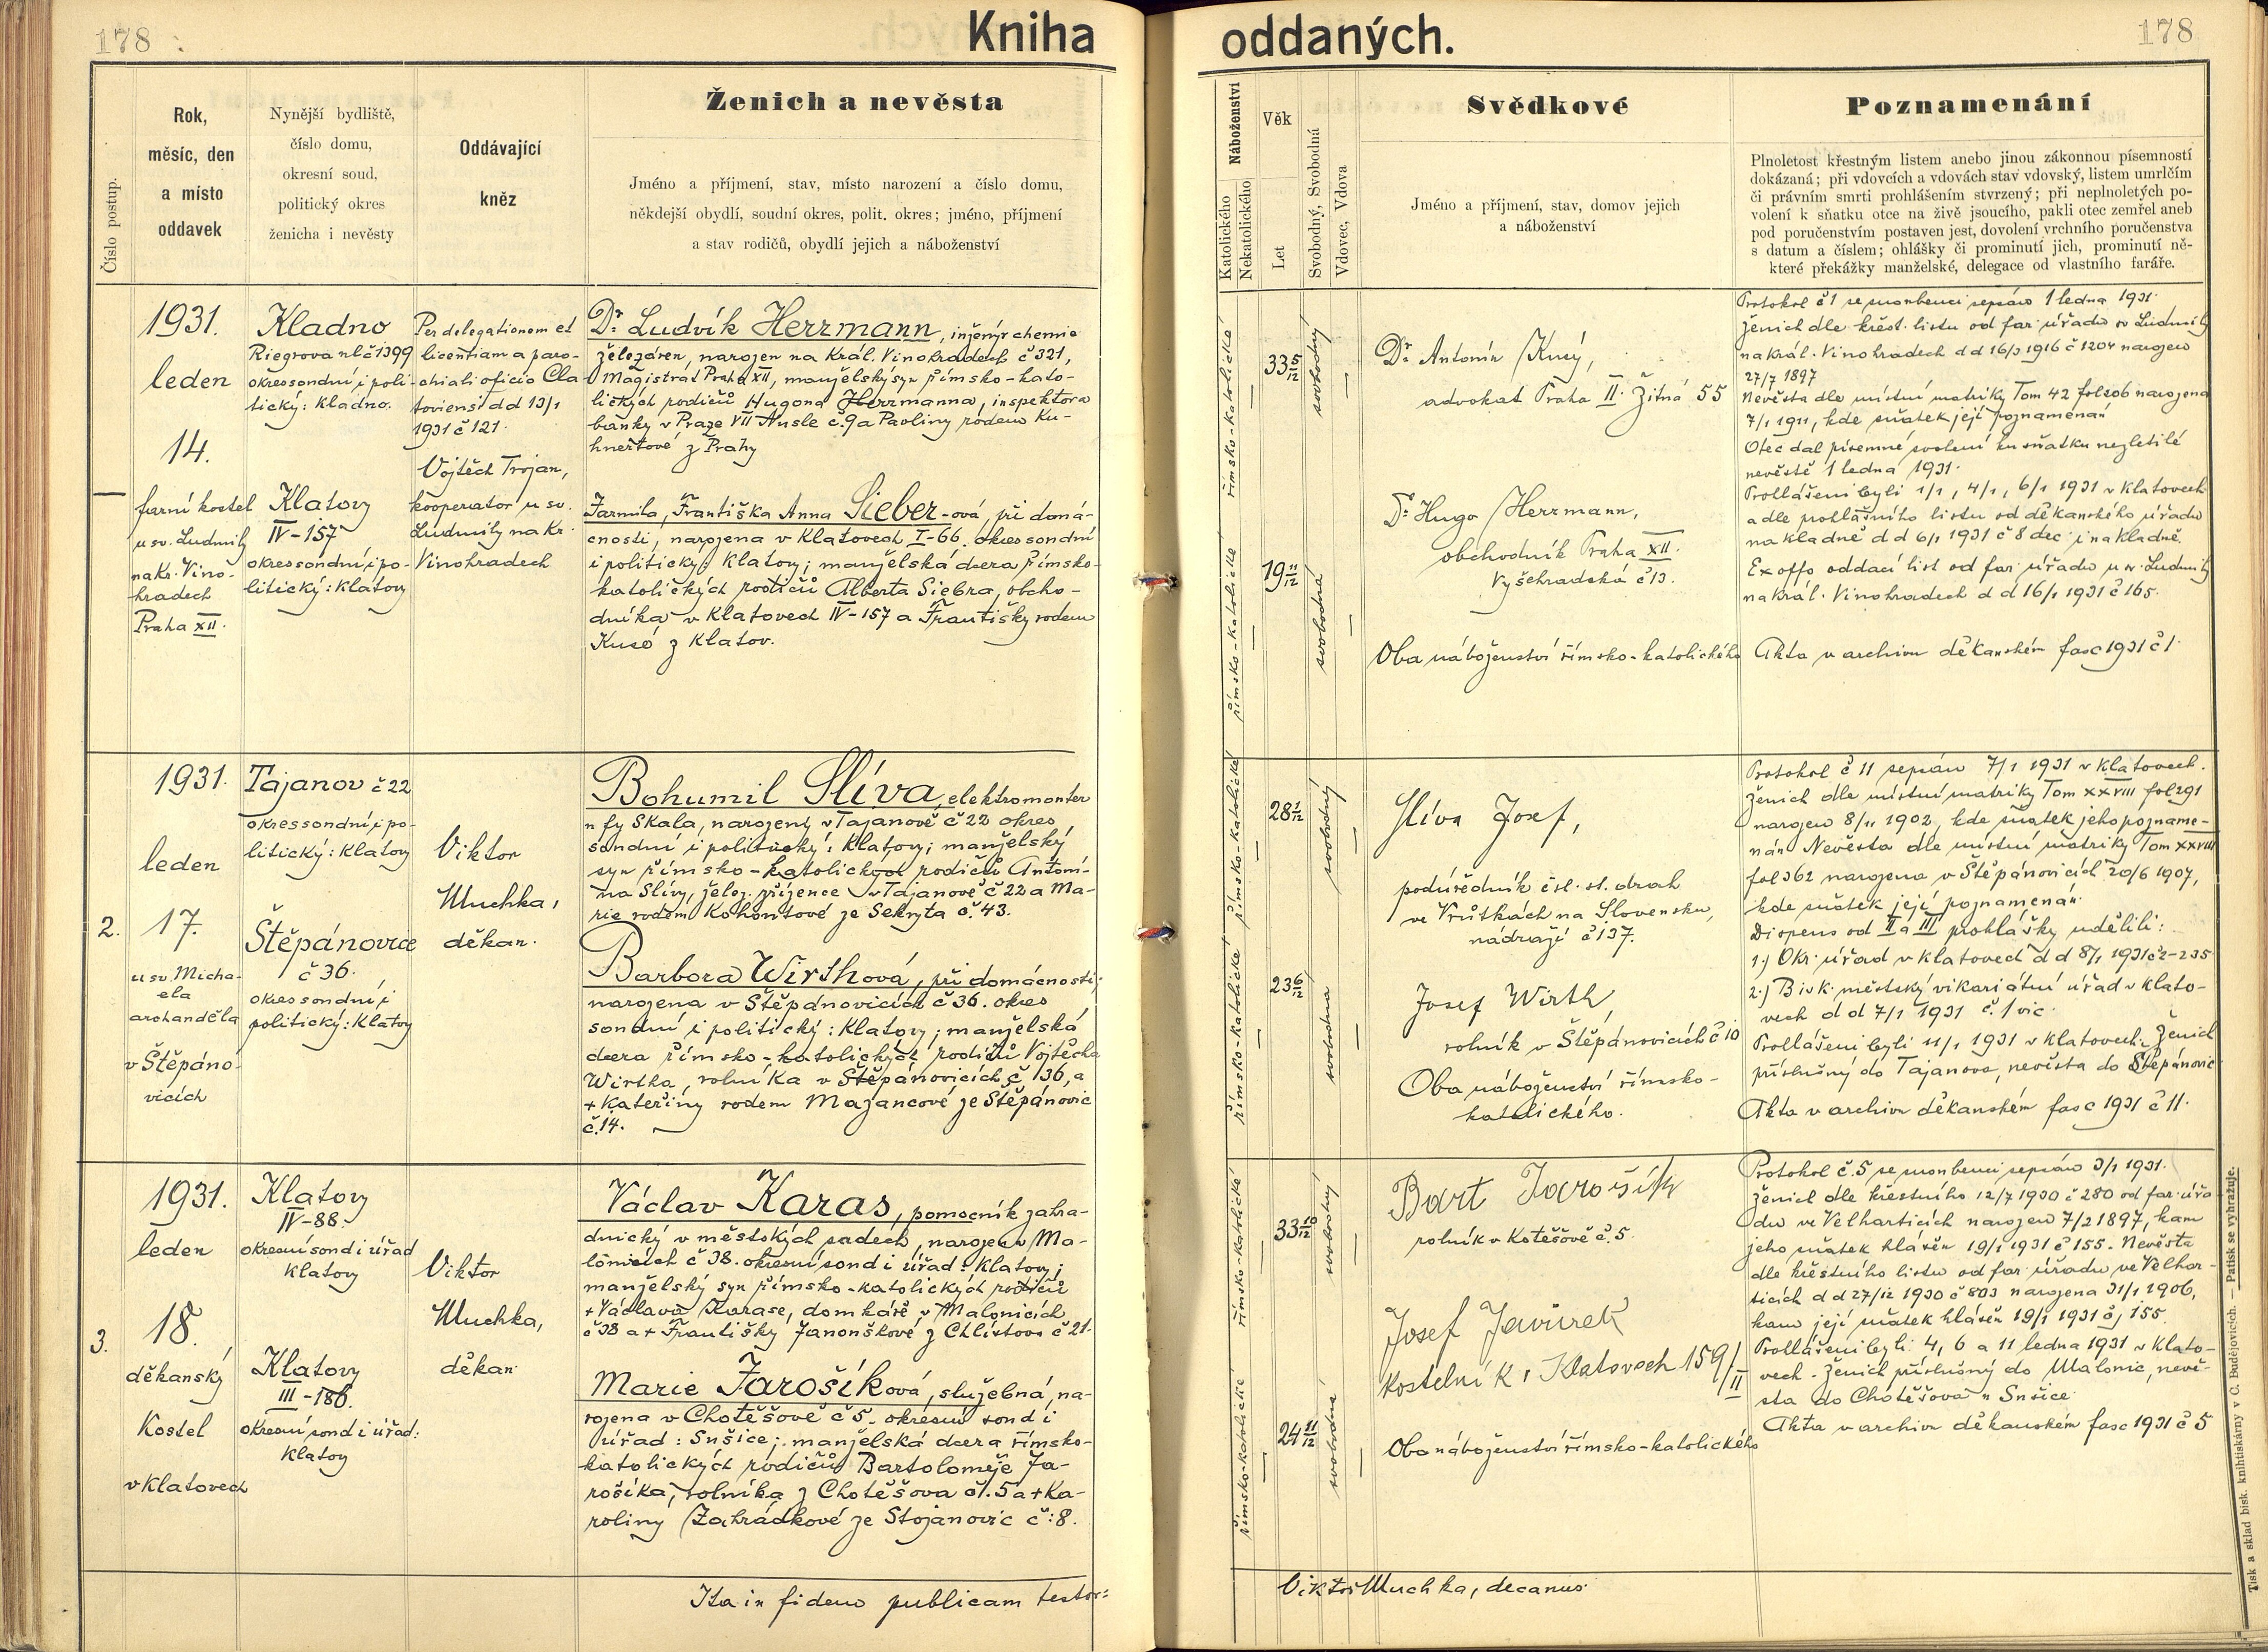 178
Kniha
Číslo postup.
Rok,
měsíc, den
a místo
oddavek
Nynější bydliště,
číslo domu,
okresní soud,
politický okres
ženicha i nevěsty
Oddávající
kněz
Ženich a nevěsta
Jméno a příjmení, stav, místo narození a číslo domu,
někdejší obydlí, soudní okres, polit. okres; jméno, příjmení
a stav rodičů, obydlí jejich a náboženství
1931.
leden
14.
farní kostel
u sv. Ludmily
na Kr. Vino-
hradech
Praha XII.
Kladno
Riegrova ul č 1399
okres soudní i poli-
tický: Kladno.
Klatovy
IV-157
okres soudní i po-
litický: Klatovy
Per delegationem et
licentiam a paro-
chiali oficio Cla-
toviensi d d 13/1
1931 č 121.
Vojtěch Trojan,
kooperator u sv.
Ludmily na Kr.
Vinohradech
Dr. Ludvík Herrmann, inženýr chemie
železáren, narozen na Král. Vinohradech č 321,
Magistrát Praha XII, manželský syn římsko-kato-
lických rodičů Hugona Herrmanna, inspektora
banky v Praze VII Nusle č. 9 a Paoliny rodem Ku-
hnertové z Prahy
Jarmila, Františka Anna Sieber-ová, při domá-
cnosti, narozena v Klatovech I-66. okres soudní
i politický: Klatovy; manželská dcera římsko-
katolických rodičů Alberta Siebra, obcho-
dníka v Klatovech IV-157 a Františky rodem
Kusé z Klatov.
2.
1931.
leden
17.
u sv. Micha-
ela
archanděla
v Štěpáno-
vicích
Tajanov č 22
okres soudní i po-
litický: Klatovy
Štěpánovice
č 36.
okres soudní i
politický: Klatovy
Viktor
Muchka,
děkan.
Bohumil Slíva, elektromonter
u fy Skala, narozený v Tajanově č 22 okres
soudní i politický: Klatovy; manželský
syn římsko-katolických rodičů Antoní-
na Slívy, želez. zřízence v Tajanově č 22 a Ma-
rie rodem Kohoutové ze Sekryta č. 43.
Barbora Wirthová, při domácnosti,
narozena v Štěpánovicích č 36. okres
soudní i politický: Klatovy; manželská
dcera římsko-katolických rodičů Vojtěcha
Wirtha, rolníka v Štěpánovicích č 136, a
+ Kateřiny rodem Mazancové ze Štěpánovic
č. 14.
3.
1931.
leden
18.
děkanský
Kostel
v Klatovech
Klatovy
IV-88.
okresní soud i úřad
Klatovy
Klatovy
III-186.
okresní soud i úřad:
Klatovy
Viktor
Muchka,
děkan.
Václav Karas, pomocník zahra-
dnický v městských sadech, narozen v Ma-
lonicích č 38. okresní soud i úřad: Klatovy;
manželský syn římsko-katolických rodičů
+ Václava Karase, domkáře, v Malonicích
č 38 a + Františky Janouškové z Chlístova č 21.
Marie Jarošíková, služebná, na-
rozena v Chotěšově č 5. okresní soud i
úřad: Sušice; manželská dcera římsko-
katolických rodičů Bartoloměje Ja-
rošíka, rolníka z Chotěšova č. 5 a + Ka-
roliny Zahrádkové ze Stojanovic č: 8.
Ita in fidem publicam testor:
oddaných.
178
Náboženství
Katolického
Nekatolického
Věk
Let
Svobodný, Svobodná
Vdovec, Vdova
Svědkové
Jméno a příjmení, stav, domov jejich
a náboženství
Poznamenání
Plnoletost křestným listem anebo jinou zákonnou písemností
dokázaná; při vdovcích a vdovách stav vdovský, listem umrlčím
či právním smrti prohlášením stvrzený; při neplnoletých po-
volení k sňatku otce na živě jsoucího, pakli otec zemřel aneb
pod poručenstvím postaven jest, dovolení vrchního poručenstva
s datum a číslem; ohlášky či prominutí jich, prominutí ně-
které překážky manželské, delegace od vlastního faráře.
římsko-katolické
33 5/12
svobodný
římsko-katolické
19 11/12
svobodná
Dr. Antonín Kusý,
advokat Praha II. Žitná 55
Dr. Hugo Herrmann,
obchodník Praha XII.
Vyšehradská č 13.
Oba náboženství římsko-katolického
Protokol č 1 se snoubenci sepsán 1 ledna 1931.
Ženich dle křest. listu od far. úřadu sv Ludmily
na král. Vinohradech d d 16/3 1916 č 1204 narozen
27/7 1897
Nevěsta dle místní matriky Tom 42 fol 206 narozena
7/1 1911, kde sňatek její poznamenán
Otec dal písemné svolení ku sňatku nezletilé
nevěstě 1 ledna 1931.
Prohlášeni byli 1/1, 4/1, 6/1 1931 v Klatovech
a dle prohlášního listu od děkanského úřadu
na kladně d d 6/1 1931 č 8 dec. i na Kladně.
Ex offo oddací list od far. úřadu u sv. Ludmily
na král. Vinohradech d d 16/1 1931 č 165.
Akta v archivu děkanském fasc 1931 č 1.
římsko-katolické
28 2/12
svobodný
římsko-katolické
23 6/12
svobodna
Slíva Josef,
podúředník čsl. st. drah
ve Vrútkách na Slovensku,
nádraží č 137.
Josef Wirth,
rolník v Štěpánovicích č 10
Oba náboženství římsko-
katolického.
Protokol č 11 sepsán 7/1 1931 v Klatovech.
Ženich dle místní matriky Tom XXVIII fol 291
narozen 8/11 1902, kde sňatek jeho pozname-
nán Nevěsta dle místní matriky Tom XXVIII
fol 362 narozena v Štěpánovicích 20/6 1907,
kde sňatek její poznamenán.
Dispens od II a III prohlášky udělili:
1.) Okr. úřad v Klatovech d d 8/1 1931 č 2-235
2.) Bisk. městský vikariátní úřad v Klato-
vech d d 7/1 1931 č. 1 vic.
Prohlášeni byli 11/1 1931 v Klatovech. Ženich
příslušný do Tajanova, nevěsta do Štěpánovic
Akta v archivu děkanském fasc 1931 č 11.
římsko-katolické
33 10/12
svobodný
římsko-katolické
24 11/12
svobodná
Bart Jarošík
rolník v Kotěšově č. 5.
Josef Javůrek
kostelník, Klatovech 159/II
Oba náboženství římsko-katolického
Protokol č. 5 se snoubenci sepsán 3/1 1931.
Ženich dle křestního 12/7 1930 č 280 od far. úřa-
du ve Velharticích narozen 7/2 1897, kam
jeho sňatek hlášen 19/1 1931 č 155. Nevěsta
dle křestního listu od far. úřadu ve Velhar-
ticích d d 27/12 1930 č 803 narozena 31/1 1906,
kam její sňatek hlášen 19/1 1931 čj 155.
Prohlášeni byli 4, 6 a 11 ledna 1931 v Klato-
vech. Ženich příslušný do Malonic, nevě-
sta do Chotěšova u Sušice.
Akta v archivu děkanském fasc 1931 č 5
Viktor Muchka, decanus.
Tisk a sklad bisk. knihtiskárny v Č. Budějovicích. — Patisk se vyhražuje.